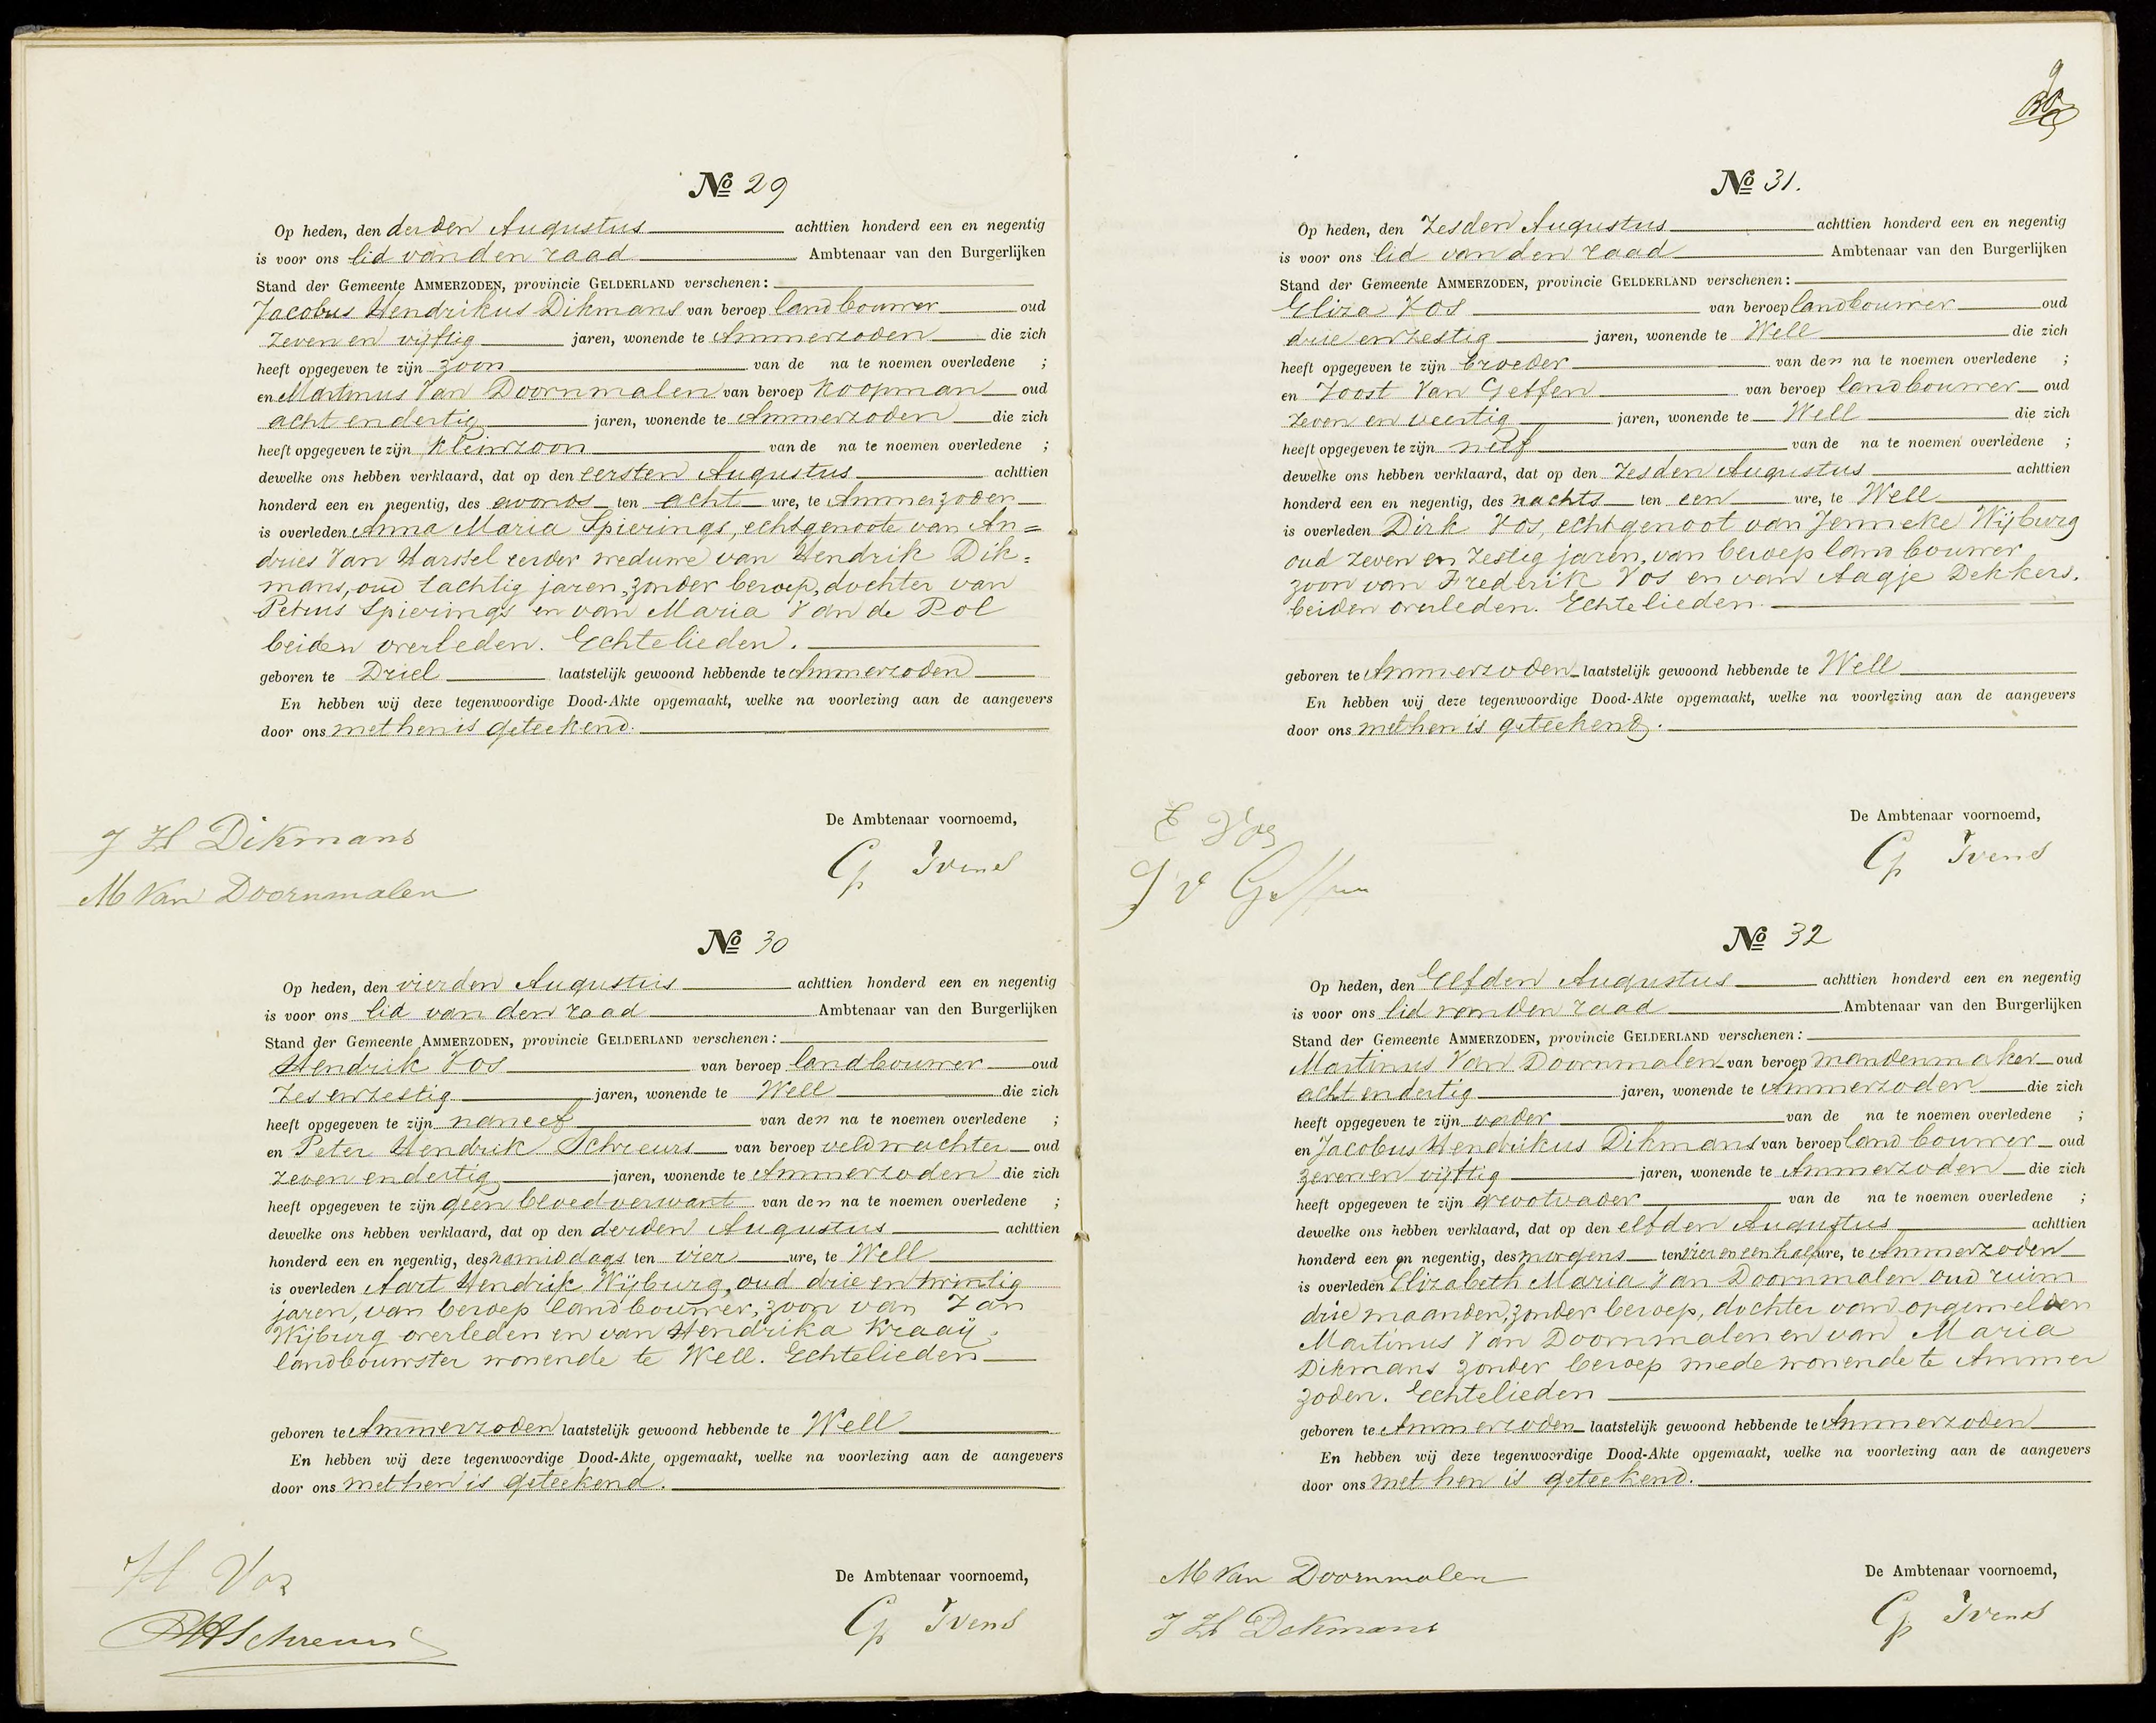 № 29
Op heden, den derden Augustus achttien honderd een en negentig
is voor ons lid van den raad Ambtenaar van den Burgerlijken
Stand der Gemeente AMMERZODEN, provincie GELDERLAND verschenen:
Jacobus Hendrikus Dikmans van beroep landbouwer oud
zeven en vijftig jaren, wonende te Ammerzoden die zich
heeft opgegeven te zijn zoon van de na te noemen overledene ;
en Martinus Van Doornmalen van beroep Koopman oud
acht en dertig jaren, wonende te Ammerzoden die zich
heeft opgegeven te zijn Kleinzoon van de na te noemen overledene ;
dewelke ons hebben verklaard, dat op den eersten Augustus achttien
honderd een en negentig, des avonds ten acht ure, te Ammerzoden
is overleden Anna Maria Spierings, echtgenoote van An=
dries Van Harssel eerder weduwe van Hendrik Dik=
mans, oud tachtig jaren, zonder beroep, dochter van
Petrus Spierings en van Maria Van de Pol
beiden overleden. Echtelieden.
geboren te Driel laatstelijk gewoond hebbende te Ammerzoden
En hebben wij deze tegenwoordige Dood-Akte opgemaakt, welke na voorlezing aan de aangevers
door ons met hen is geteekend.
De Ambtenaar voornoemd,
J H Dikmans
Gp Ivens
M Van Doornmalen
№ 30
Op heden, den vierden Augustus achttien honderd een en negentig
is voor ons lid van den raad Ambtenaar van den Burgerlijken
Stand der Gemeente AMMERZODEN, provincie GELDERLAND verschenen:
Hendrik Vos van beroep landbouwer oud
Zes en zestig jaren, wonende te Well die zich
heeft opgegeven te zijn naneef van den na te noemen overledene ;
en Peter Hendrik Schreurs van beroep veldwachter oud
zeven en dertig jaren, wonende te Ammerzoden die zich
heeft opgegeven te zijn geen bloedverwant van den na te noemen overledene ;
dewelke ons hebben verklaard, dat op den derden Augustus achttien
honderd een en negentig, des namiddags ten vier ure, te Well
is overleden Aart Hendrik Wijburg, oud drie en twintig
jaren, van beroep landbouwer, zoon van Jan
Wijburg overleden en van Hendrika Kraaij,
landbouwster wonende te Well. Echtelieden
geboren te Ammerzoden laatstelijk gewoond hebbende te Well
En hebben wij deze tegenwoordige Dood-Akte opgemaakt, welke na voorlezing aan de aangevers
door ons met hen is geteekend.
H Vos
De Ambtenaar voornoemd,
PHSchreurs
Gp Ivens
9
№ 31.
Op heden, den Zesden Augustus achttien honderd een en negentig
is voor ons lid van den raad Ambtenaar van den Burgerlijken
Stand der Gemeente AMMERZODEN, provincie GELDERLAND verschenen:
Eliza Vos van beroep landbouwer oud
drie en zestig jaren, wonende te Well die zich
heeft opgegeven te zijn broeder van den na te noemen overledene ;
en Joost Van Geffen van beroep landbouwer oud
zeven en veertig jaren, wonende te Well die zich
heeft opgegeven te zijn neef van de na te noemen overledene ;
dewelke ons hebben verklaard, dat op den zesden Augustus achttien
honderd een en negentig, des nachts ten een ure, te Well
is overleden Dirk Vos, echtgenoot van Jenneke Wijburg
oud zeven en zestig jaren, van beroep landbouwer
zoon van Frederik Vos en van Aagje Dekkers.
beiden overleden. Echtelieden.
geboren te Ammerzoden laatstelijk gewoond hebbende te Well
En hebben wij deze tegenwoordige Dood-Akte opgemaakt, welke na voorlezing aan de aangevers
door ons met hen is geteekend.
E Vos
De Ambtenaar voornoemd,
J v Geffen
Gp Ivens
№ 32
Op heden, den Elfden Augustus achttien honderd een en negentig
is voor ons lid van den raad Ambtenaar van den Burgerlijken
Stand der Gemeente AMMERZODEN, provincie GELDERLAND verschenen:
Martinus Van Doornmalen van beroep mandenmaker oud
acht en dertig jaren, wonende te Ammerzoden die zich
heeft opgegeven te zijn vader van de na te noemen overledene ;
en Jacobus Hendrikus Dikmans van beroep landbouwer oud
zeven en vijftig jaren, wonende te Ammerzoden die zich
heeft opgegeven te zijn grootvader van de na te noemen overledene ;
dewelke ons hebben verklaard, dat op den elfden Augustus achttien
honderd een en negentig, des morgens ten vier en een half ure, te Ammerzoden
is overleden Elizabeth Maria Van Doornmalen oud ruim
drie maanden, zonder beroep, dochter van opgemelden
Martinus Van Doornmalen en van Maria
Dikmans zonder beroep mede wonende te Ammer
zoden. Echtelieden
geboren te Ammerzoden laatstelijk gewoond hebbende te Ammerzoden
En hebben wij deze tegenwoordige Dood-Akte opgemaakt, welke na voorlezing aan de aangevers
door ons met hen is geteekend.
M Van Doornmalen
De Ambtenaar voornoemd,
J H Dikmans
Gp Ivens